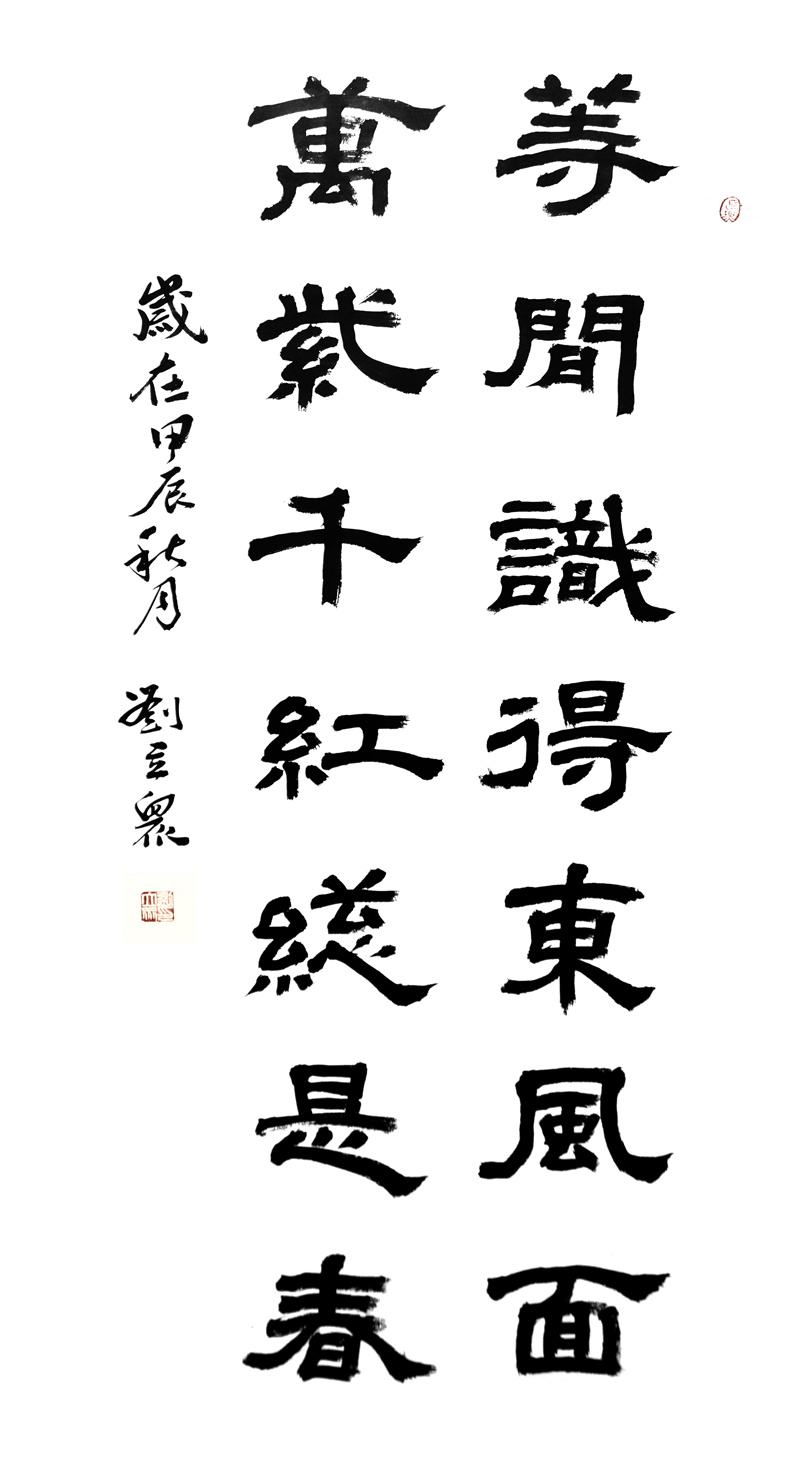 等閒識得東風面
萬紫千紅總是春
歲在甲辰秋月 劉立眾